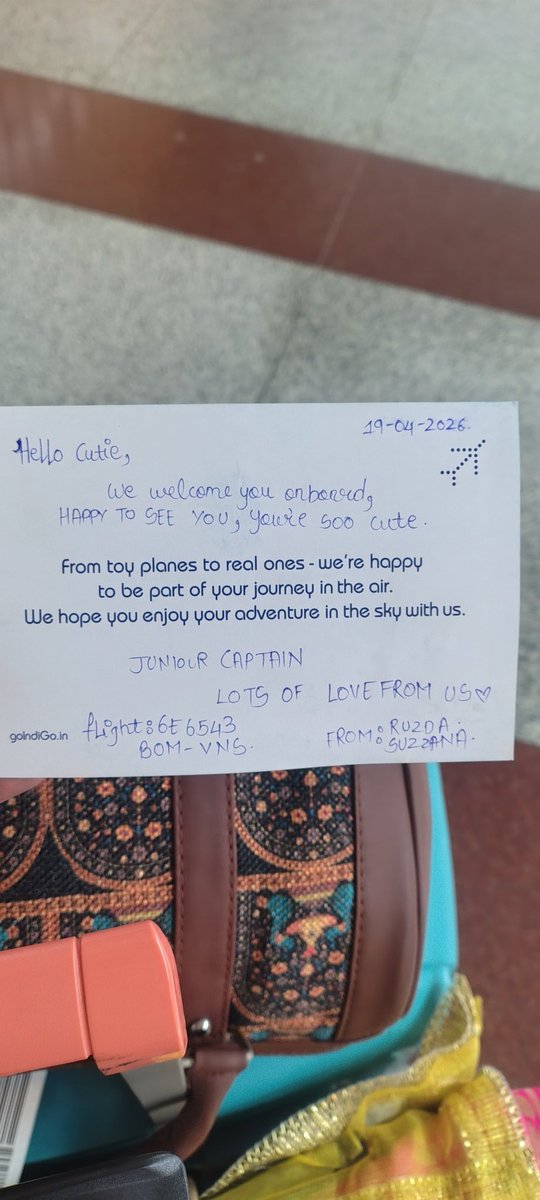 19-04-2026.
Hello Cutie,
We welcome you onboard,
HAPPY TO SEE YOU, you're soo cute.
From toy planes to real ones - we're happy
to be part of your journey in the air.
We hope you enjoy your adventure in the sky with us.
JUNIOUR CAPTAIN
LOTS OF LOVE FROM US♡
goIndiGo.in
flight: 6E 6543
BOM-VNS.
FROM: RUZDA.
SUZZANA.